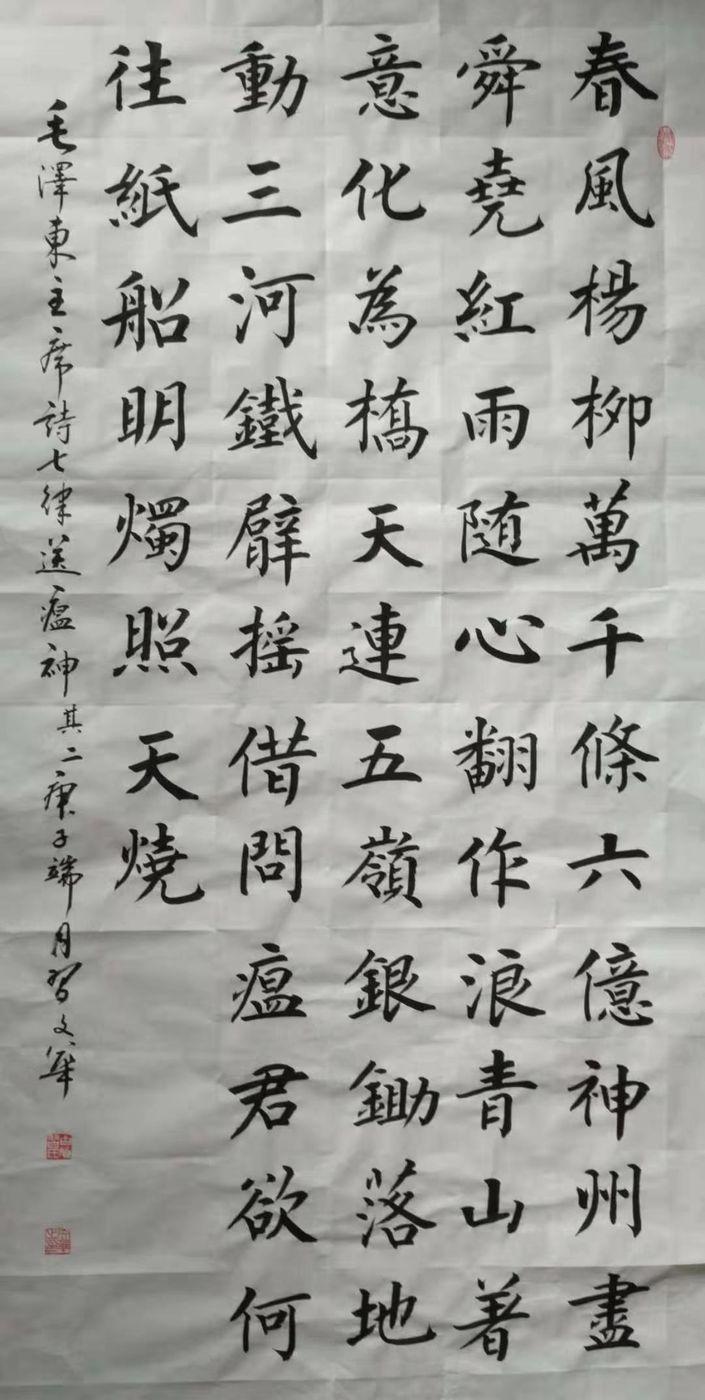 春風楊柳萬千條六億神州盡
舜堯紅雨随心翻作浪青山著
意化為橋天連五嶺銀鋤落地
動三河鐵臂摇借問瘟君欲何
往紙船明燭照天燒
毛澤東主席詩七律送瘟神其二庚子端月習文華